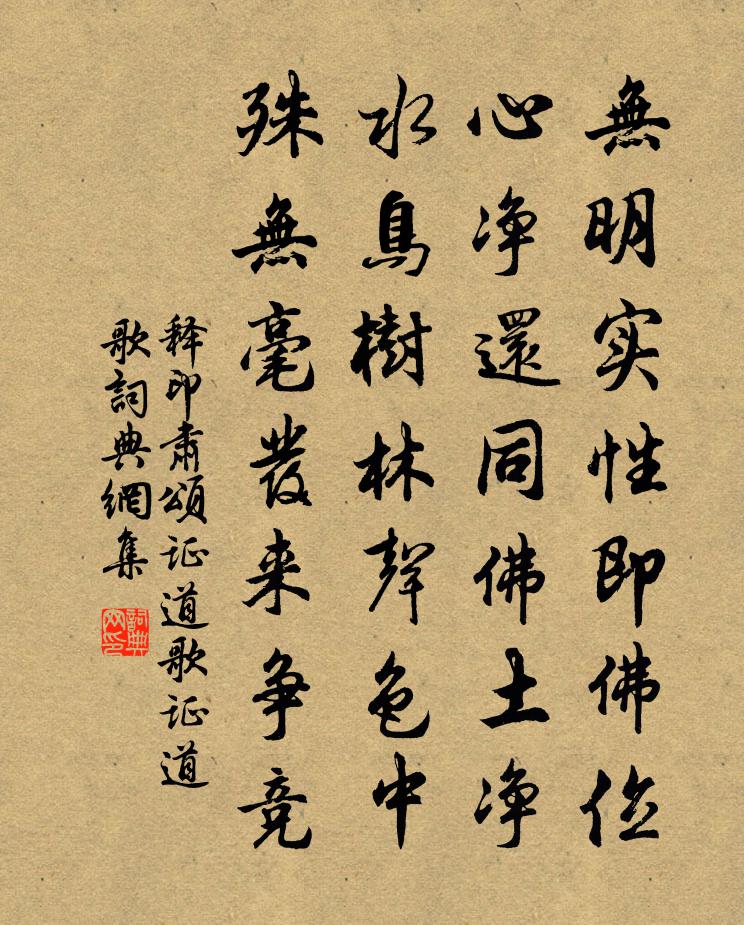 無明实性即佛
心净還同佛土净
水鳥樹林聲色中
殊無毫發来争竞
释印肅頌证道歌证道
歌詞典網集
詞典
网印